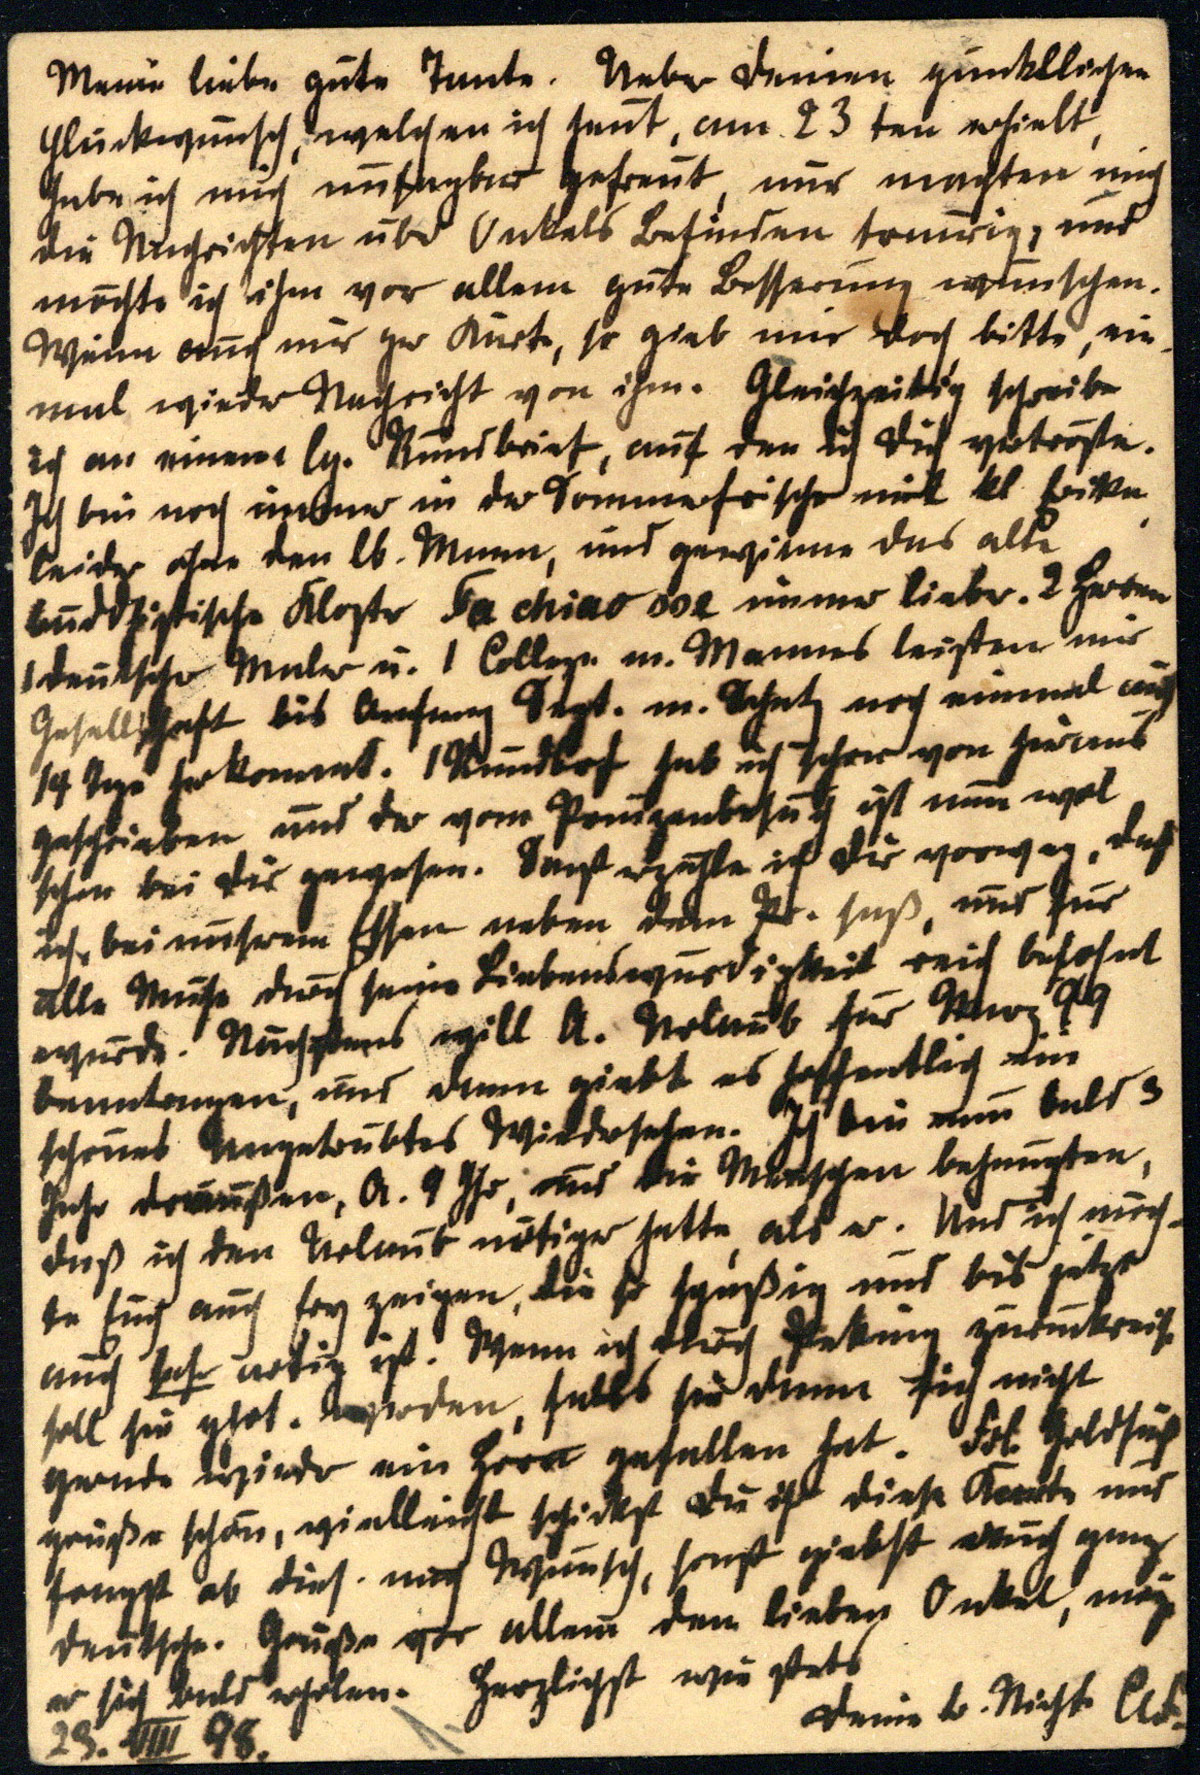 Meine liebe gute Tante. Ueber Deinen pünktlichen
Glückwunsch, welchen ich heut, am 23ten erhielt,
habe ich mich unsagbar gefreut, nur machten mich
die Nachrichten über Onkels Befinden traurig, und
möchte ich ihm vor allem gute Besserung wünschen.
Wenn auch nur per Karte, so gieb mir doch, bitte, ein-
mal wieder Nachricht von ihm. Gleichzeitig schreibe
ich an einem lg. Rundbrief, auf den ich Dich vertröste.
Ich bin noch immer in der Sommerfrische mit kl. Erika
leider ohne den lb. Mann, und gewinne das alte
buddhistische Kloster Fa chiao sse immer lieber. 2 Herren
1 deutscher Maler u. 1 College m. Mannes leisten mir
Gesellschaft bis Anfang Sept. m. Schatz noch einmal auf
14 Tage herkommt. 1 Rundbrf hab ich schon von hieraus
geschrieben und der vom Prinzenbesuch ist nun wol
schon bei Dir gewesen. Sonst erzähle ich Dir vorweg, daß
ich bei unserem Essen neben dem Pr. saß, und für
alle Mühe durch seine Liebenswürdigkeit reich belohnt
wurde. Nächstens will A. Urlaub für März 99
beantragen, und dann giebt es hoffentlich ein
schönes ungetrübtes Wiedersehen. Ich bin nun bald 3
Jahr draußen, A. 9 Jhr, und die Menschen behaupten,
daß ich den Urlaub nötiger hätte, als er. Und ich möch-
te Euch auch zeigen, die so spaßig und bis jetzt
auch sehr artig ist. Wenn ich durch Peking zurückreise
soll sie phot. werden, falls sie dann sich nicht
gerade wieder ein Horn gefallen hat. Frl. Goldfuß
grüße schön, vielleicht schickst Du ihr diese Karte und
fragst ob dies. nach Wunsch, sonst giebst auch ganz
deutsche. Grüße vor allem den lieben Onkel, möge
er sich bald erholen. Herzlichst wie stets
Deine tr. Nichte
23. VIII 98.